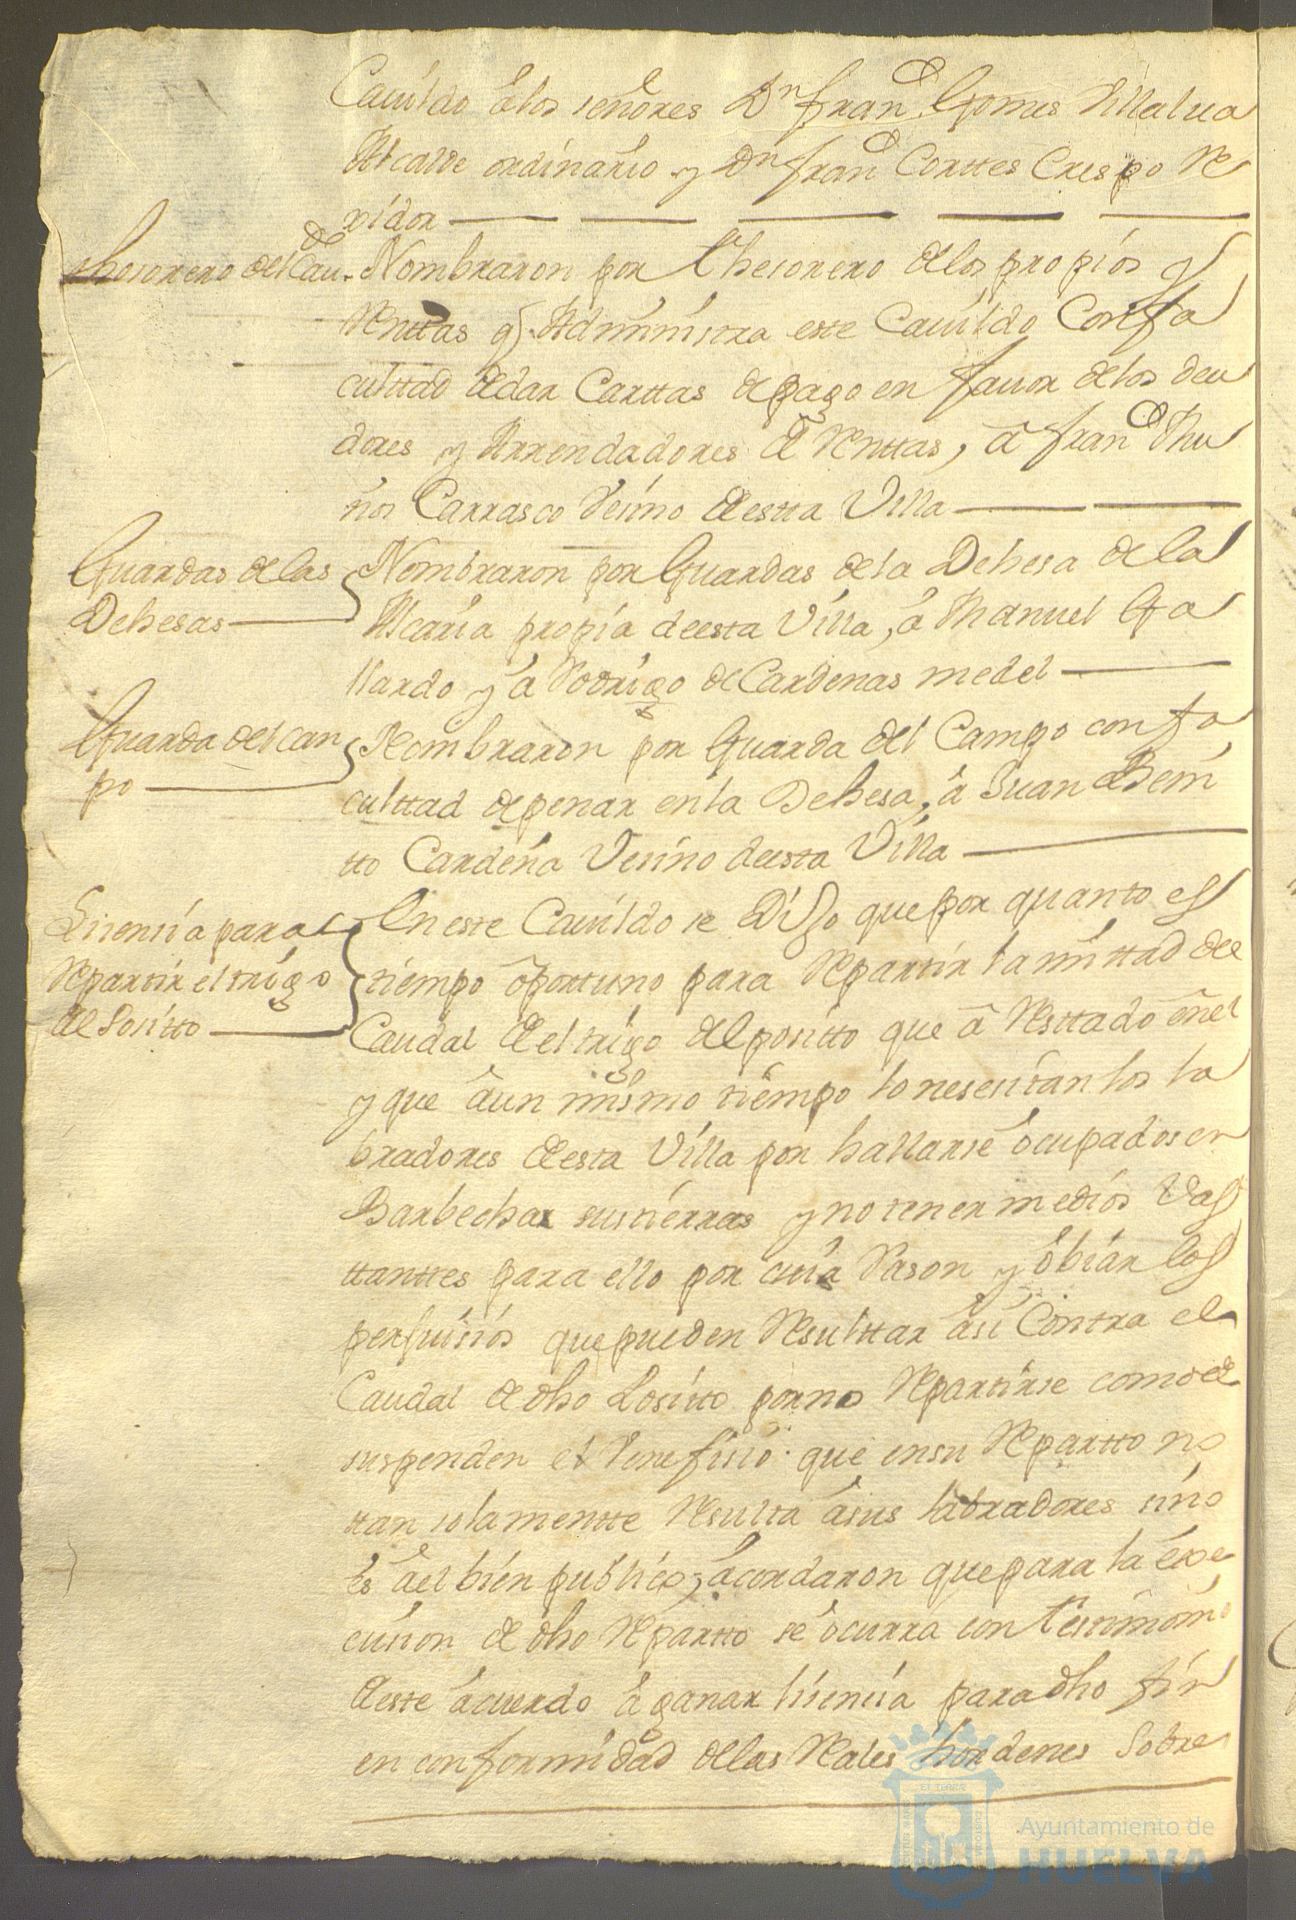 Cauildo â los señores Dn Franco Gomes Villalua
Alcalde ordinario y Dn Franco Corttes Crespo Re
xidor
thesorero del Cauo
Nombraron por thesorero de los propios y
Renttas q Administra este Cauildo Con fa
culttad de dar Carttas de pago en fauor de los deu
dores y Arrendadores de Renttas, â Franco Mu
ños Carrasco Vesino de estta Villa
Guardas de las
Dehesas
Nombraron por Guardas de la Dehesa de la
Alcaria propia de esta Villa, â Manuel Ga
llardo y â Rodrigo de Cardenas medel
Guarda del can
po
Nombraron por Guarda del Campo con fa
culttad de penar en la Dehesa, â Juan Beni
tto Cardeña Vesino de esta Villa
Lisensia para
Repartir el trigo
del Positto
En este Cauildo se Dijo que por quanto es
tiempo ôporttuno para Repartir la mittad del
Caudal de el trigo del positto que â Resttado en el
y que â un mismo tiempo lo nesesitan los la
bradores de esta Villa por hallarse ôcupados en
Barbechar sus tierras y no tener medios Vas
ttanttes para ello por cuia Rason y ôbiar los
perjuisios que pueden Resulttar âsi Contra el
Caudal de dho Positto por no Repartirse como el
suspender el Venefisio que en su Repartto no
ttan solamentte Resulta â sus labradores sino
es âel bien publico, âcordaron que para la exe
cusion de dho Repartto se ôcurra con testimonio
de este âcuerdo â ganar lisensia para dho fin
en conformidad de las Reales hordenes Sobre
Ayuntamiento de
HUELVA